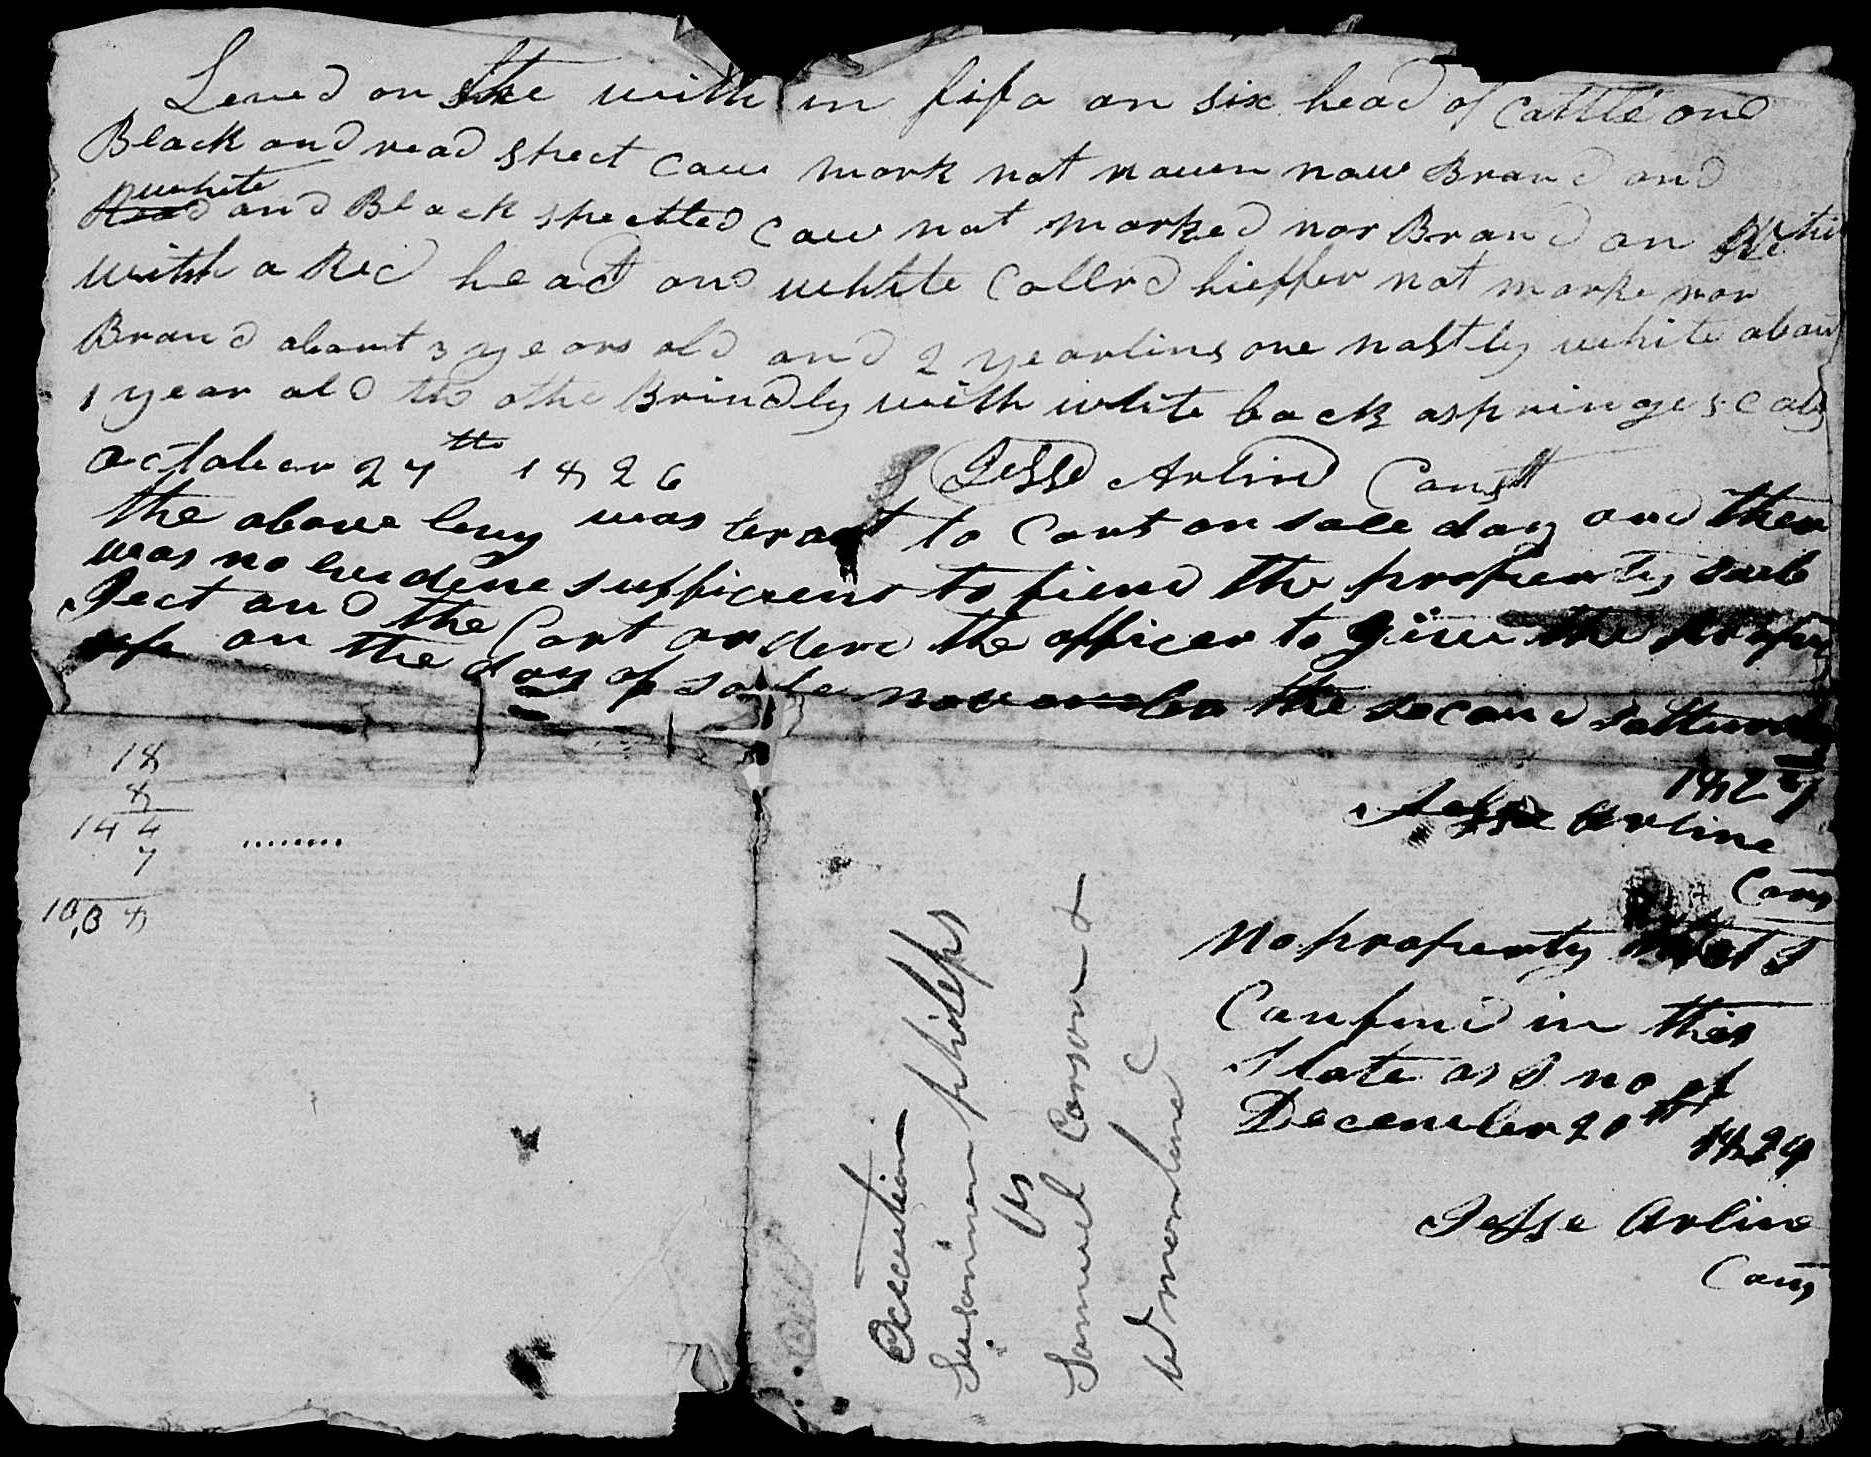 Leved on the with in fifa on six head of Cattle one
Black and read spect Cow mark not nown now Brand and
white
and Black spectted Cow not marked nor Brand on
with a Red head one white Collerd hieffer not marke nor
Brand about 3 years old and 2 yearlins one nostly white abou
1 year old the othe Brindly with white back aspringe s calf
october 27th 1826 Jesse Arlind Constt
the above levy was brout to Cort on sale day and ther
was no suffic to the property sub
Ject and the Cort orderd the officer to give the proper
up on the day of sale november the second satturday
1827
Jesse Arline
Cons
18
8
144
7
10,08
No property that I
Can find in this
State as I no of
December 20th 1829
Jesse Arline
Cons
Execution
Susannah phileps
vs
Samuel Corson &